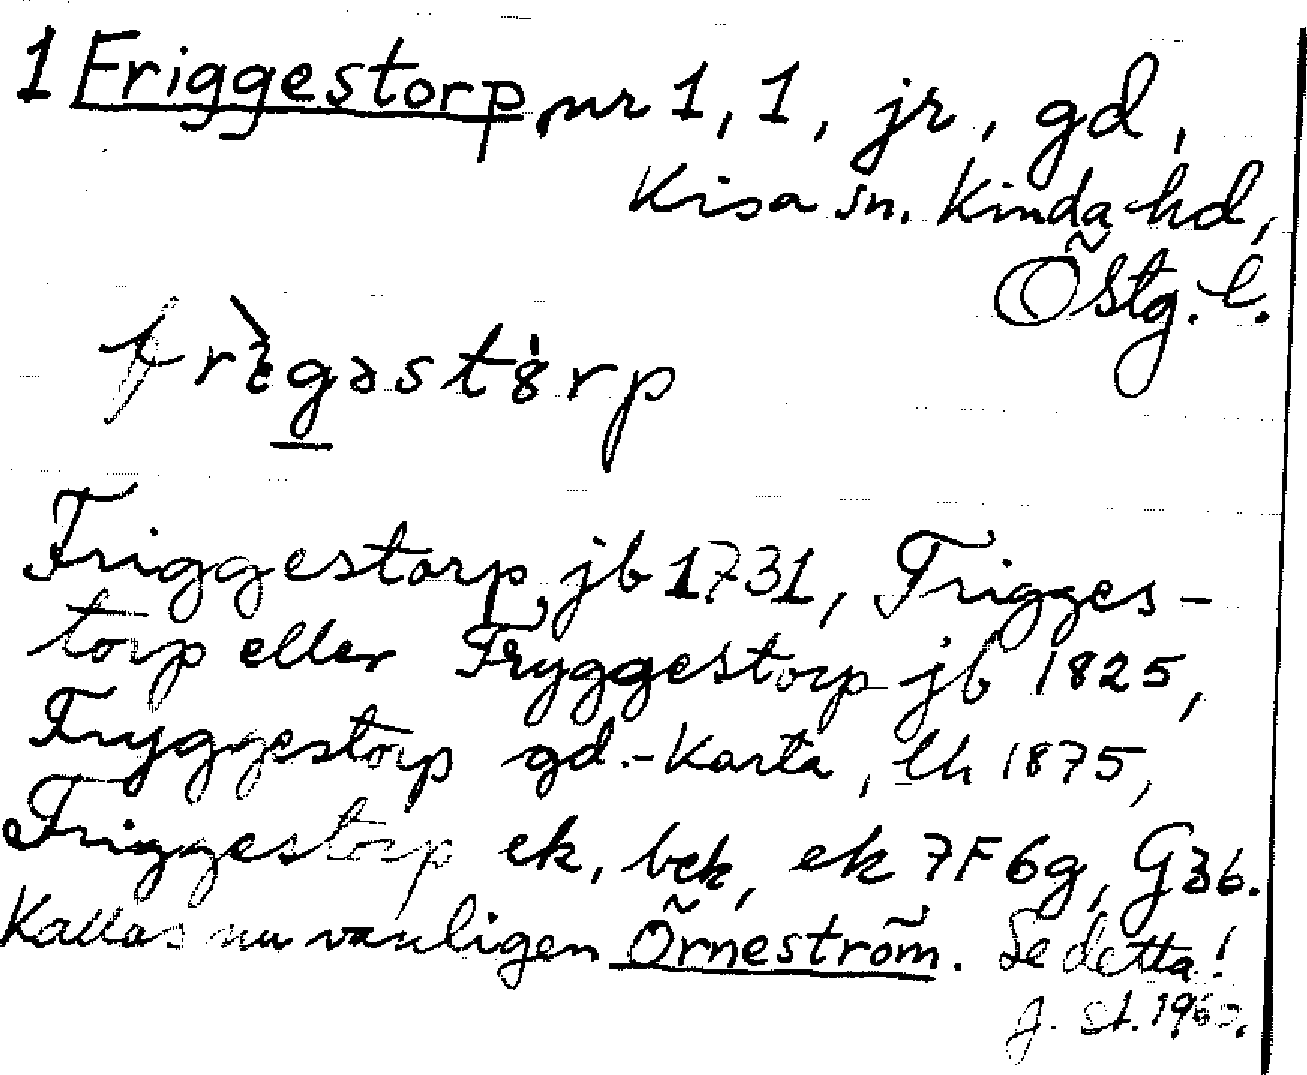 1 Friggestorp, nr 1, 1, jr, gd,
Kisa sn. Kinda hd,
Östg. l.
Friggestorp, jb 1731, Frigges-
torp eller Fryggestorp jb 1825,
Fryggestorp gd.-Karta, lh 1875,
Friggestorp ek, bek, ek 7F6g, G36.
Kallas nu vanligen Örneström. Se detta!
J. St. 1960.